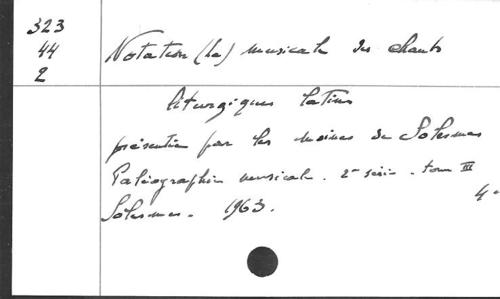 323
44
2
Notation (la) musicale des chants
liturgiques latins
présentée par les moines de Solesmes
Paléographie musicale. 2e série. tome III
4°
Solesmes. 1963.